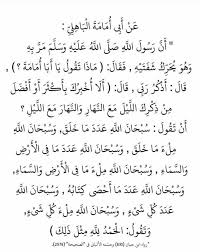 عَنْ أَبِي أُمَامَةَ الْبَاهِلِيِّ :
" أَنَّ رَسُولَ اللهِ صَلَّى اللهُ عَلَيْهِ وَسَلَّمَ مَرَّ بِهِ
وَهُوَ يُحَرِّكُ شَفَتَيْهِ , فَقَالَ : ( مَاذَا تَقُولُ يَا أَبَا أُمَامَةَ ؟ ) ,
قَالَ : أَذْكُرُ رَبِّي , قَالَ : ( أَلَا أُخْبِرُكَ بِأَكْثَرَ أَوْ أَفْضَلَ
مِنْ ذِكْرِكَ اللَّيْلَ مَعَ النَّهَارِ وَالنَّهَارَ مَعَ اللَّيْلِ ؟
أَنْ تَقُولَ : سُبْحَانَ اللهِ عَدَدَ مَا خَلَقَ , وَسُبْحَانَ اللهِ
مِلْءَ مَا خَلَقَ , وَسُبْحَانَ اللهِ عَدَدَ مَا فِي الْأَرْضِ
وَالسَّمَاءِ , وَسُبْحَانَ اللهِ مِلْءَ مَا فِي الْأَرْضِ وَالسَّمَاءِ,
وَسُبْحَانَ اللهِ عَدَدَ مَا أَحْصَى كِتَابُهُ , وَسُبْحَانَ اللهِ
عَدَدَ كُلِّ شَيْءٍ , وَسُبْحَانَ اللهِ مِلْءَ كُلِّ شَيْءٍ ,
وَتَقُولُ : الْحَمْدُ لِلَّهِ مِثْلَ ذَلِكَ )
"رواه ابن حبان وحسنه الألباني في "الصحيحة